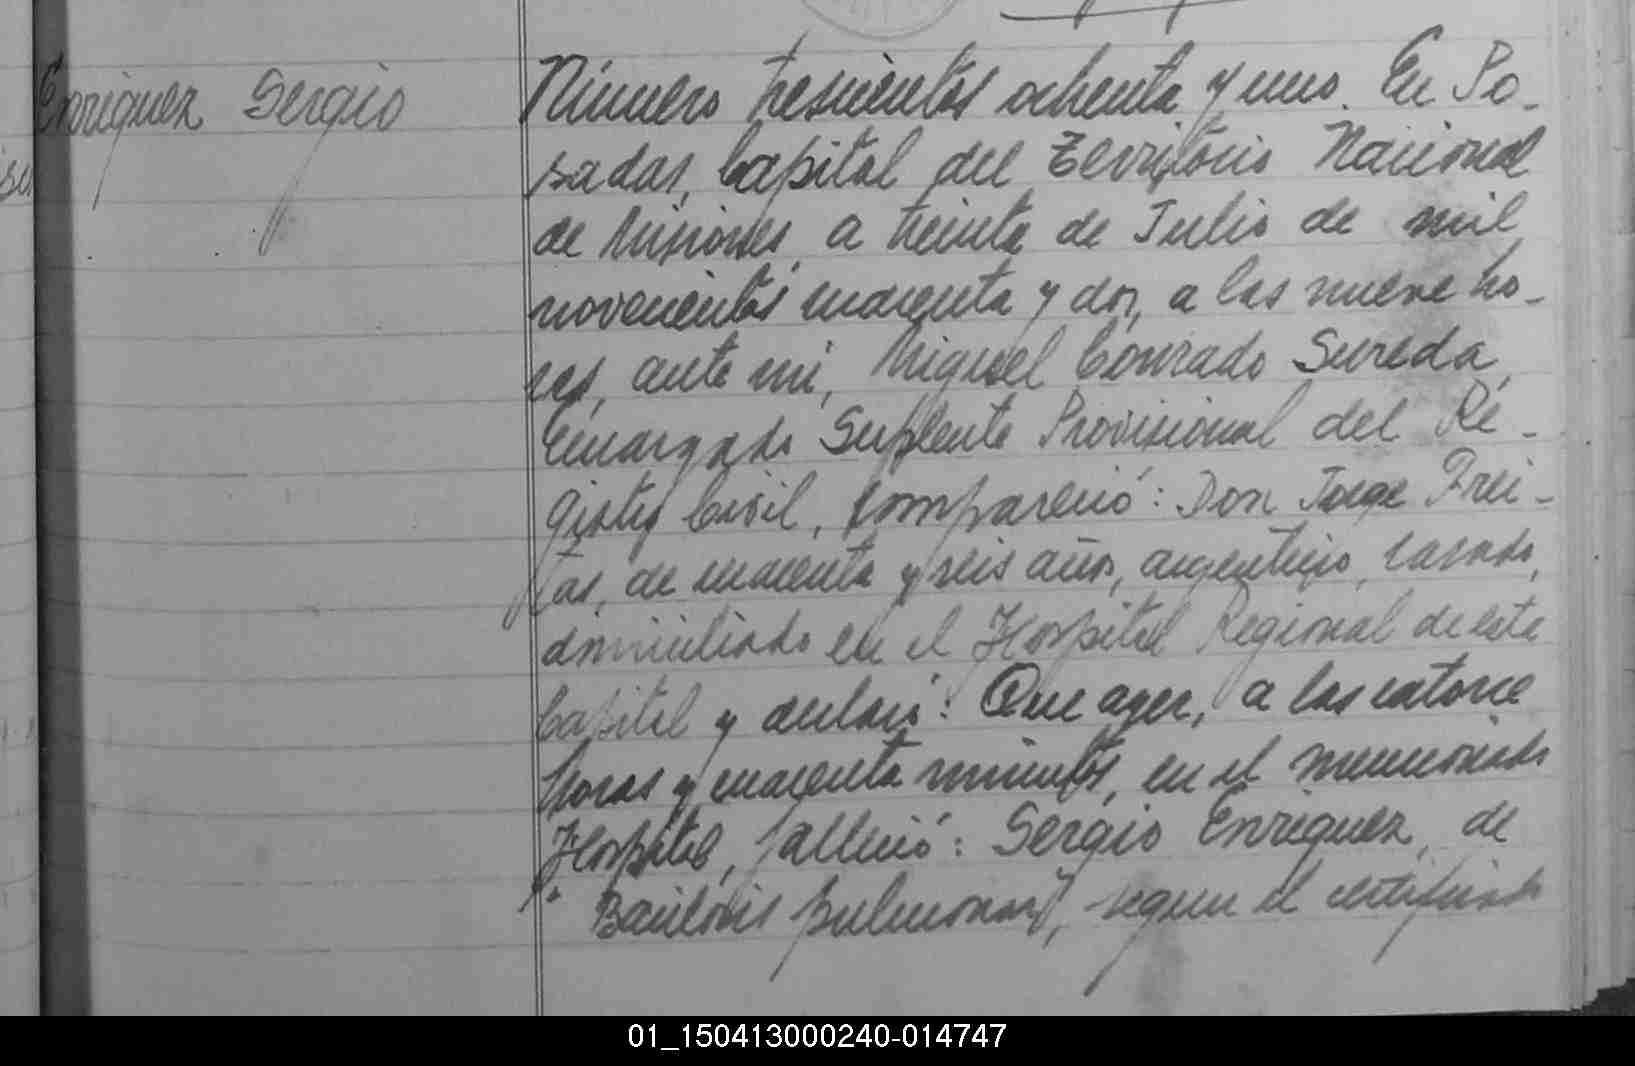 Enriquez Sergio
Número trescientos ochenta y uno. En Po-
sadas, Capital del Territorio Nacional
de Misiones, a treinta de Julio de mil
novecientos cuarenta y dos, a las nueve ho-
ras, ante mí, Miguel Conrado Sureda,
Encargado Suplente Provisional del Re-
gistro Civil, compareció: Don Jorge Frei-
tas, de cuarenta y seis años, argentino, casado,
domiciliado en el Hospital Regional de esta
Capital y declaró: Que ayer, a las catorce
horas y cuarenta minutos, en el mencionado
Hospital, falleció: Sergio Enriquez, de
"Bacilosis pulmonar", segun el certificado
01_150413000240-014747